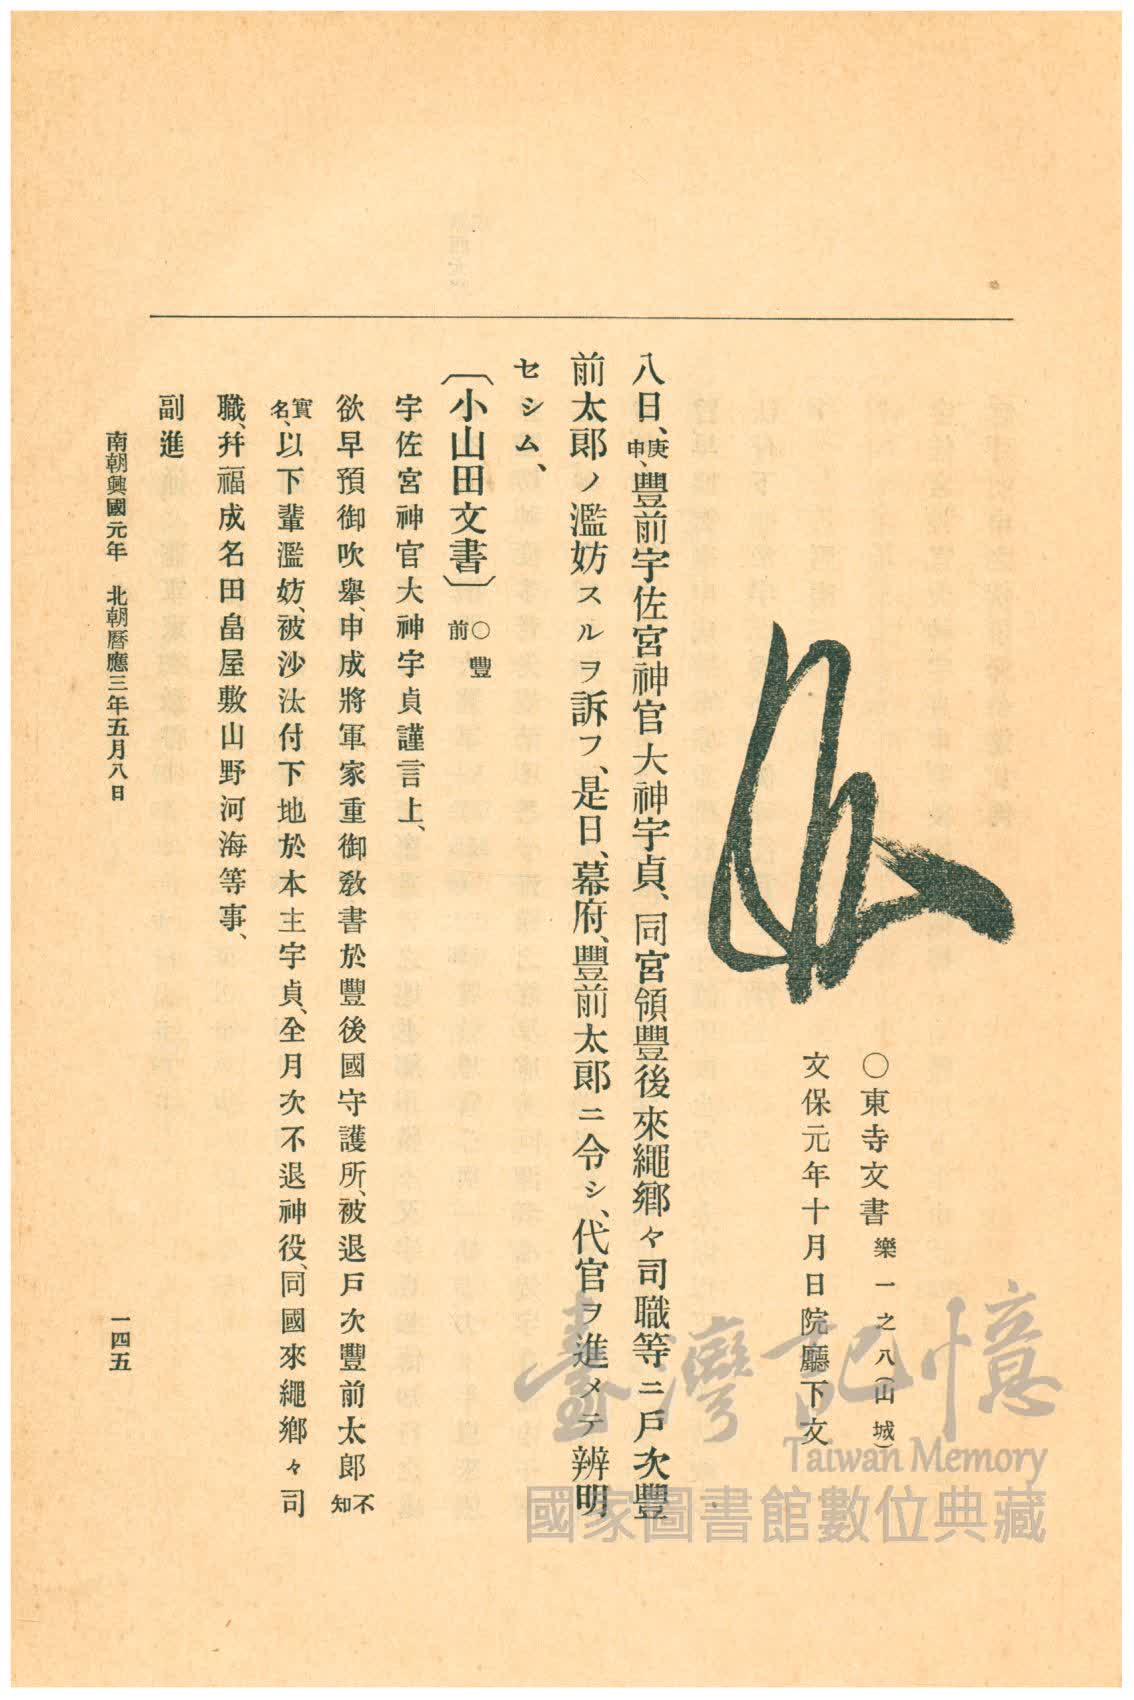 ○東寺文書樂一之八(山城)
文保元年十月日院廳下文
八日、庚申、豐前宇佐宮神官大神宇貞、同宮領豐後來繩鄕々司職等ニ戶次豐
前太郎ノ濫妨スルヲ訴フ、是日、幕府、豐前太郎ニ令シ、代官ヲ進メテ辨明
セシム、
〔小山田文書〕○豐前
宇佐宮神官大神宇貞謹言上、
欲早預御吹擧、申成將軍家重御敎書於豐後國守護所、被退戶次豐前太郎不知
實名、以下輩濫妨、被沙汰付下地於本主宇貞、全月次不退神役、同國來繩鄕々司
職、幷福成名田畠屋敷山野河海等事、
副進
南朝興國元年 北朝曆應三年五月八日
一四五
臺灣記憶
Taiwan Memory
國家圖書館數位典藏